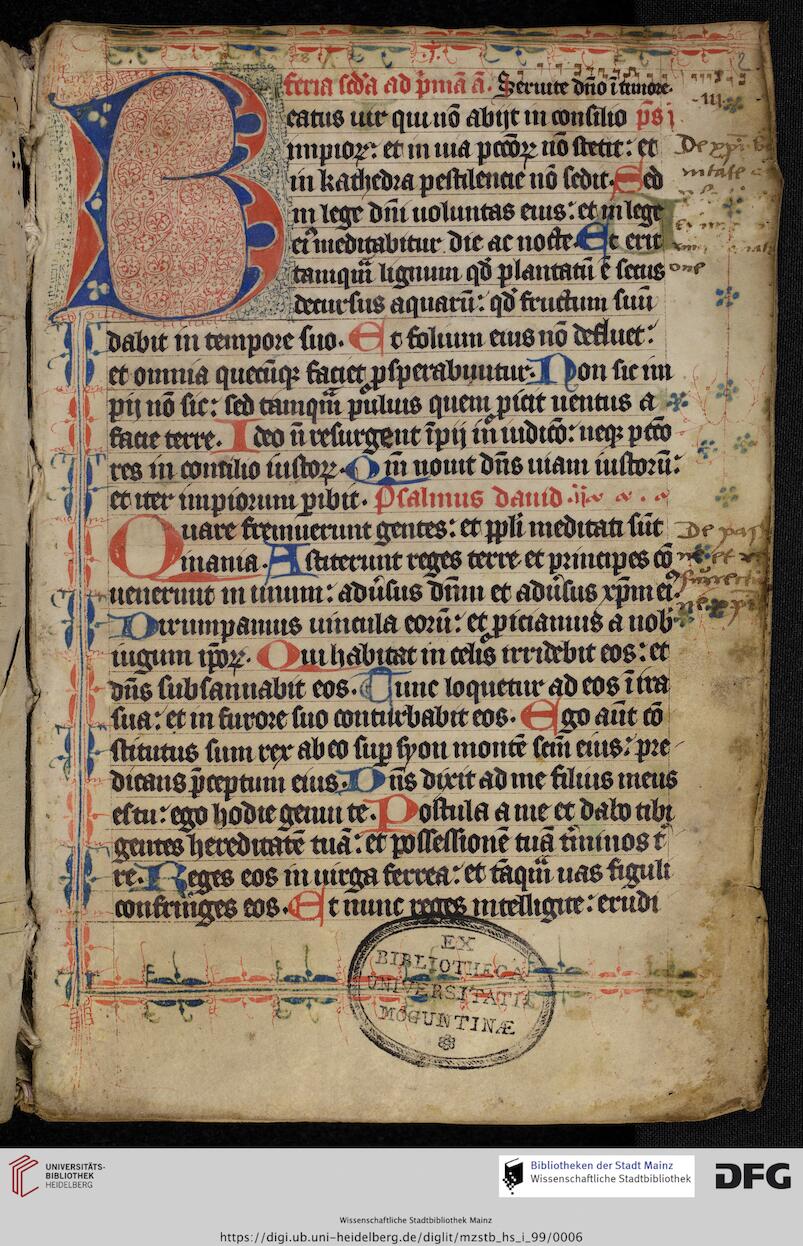 .I.
feria scd'a ad p̄mā ā. Seruite dn̄o ī timore.
2
.III.
Beatus uir qui nō abijt in consilio ps̄ i
impioꝝ: et in uia pccōꝝ nō stetit: et
in kathedra pestilencie nō sedit. Sed
in lege dn̄i uoluntas eius: et in lege
ei' meditabitur die ac nocte. Et erit
tamquā lignum qd̄ plantatū ē secus
decursus aquarū: qd̄ fructum suū
dabit in tempore suo. Et folium eius nō defluet:
et omnia quecūqꝫ faciet ꝓsperabuntur. Non sic im
pij nō sic: sed tamquā puluis quem ꝓicit uentus a
facie terre. Ideo n̄ resurgent īpij in iudicō: neqꝫ pccō
res in consilio iustoꝝ. Qm̄ nouit dn̄s uiam iustorū:
et iter impiorum ꝑibit. Psalmus dauid .ij.
Quare fremuerunt gentes: et ppl̄i meditati sūt
inania. Astiterunt reges terre et principes cō
uenerunt in unum: adūsus dn̄m et adūsus xp̄m ei'.
Dirumpamus uincula eorū: et ꝓiciamus a nob'
iugum ip̄oꝝ. Qui habitat in celis irridebit eos: et
dn̄s subsannabit eos. Tunc loquetur ad eos ī ira
sua: et in furore suo conturbabit eos. Ego aūt cō
stitutus sum rex ab eo suꝑ syon montē scm̄ eius: pre
dicans p̄ceptum eius. Dn̄s dixit ad me filius meus
es tu: ego hodie genui te. Postula a me et dabo tibi
gentes hereditatē tuā: et possessionē tuā t'minos t'
re. Reges eos in uirga ferrea: et tāquā uas figuli
confringes eos. Et nunc reges intelligite: erudi
De pas
EX
BIBLIOTHECA
UNIVERSITATIS
MOGUNTINÆ
UNIVERSITÄTS-
BIBLIOTHEK
HEIDELBERG
Bibliotheken der Stadt Mainz
Wissenschaftliche Stadtbibliothek
DFG
Wissenschaftliche Stadtbibliothek Mainz
https://digi.ub.uni-heidelberg.de/diglit/mzstb_hs_i_99/0006